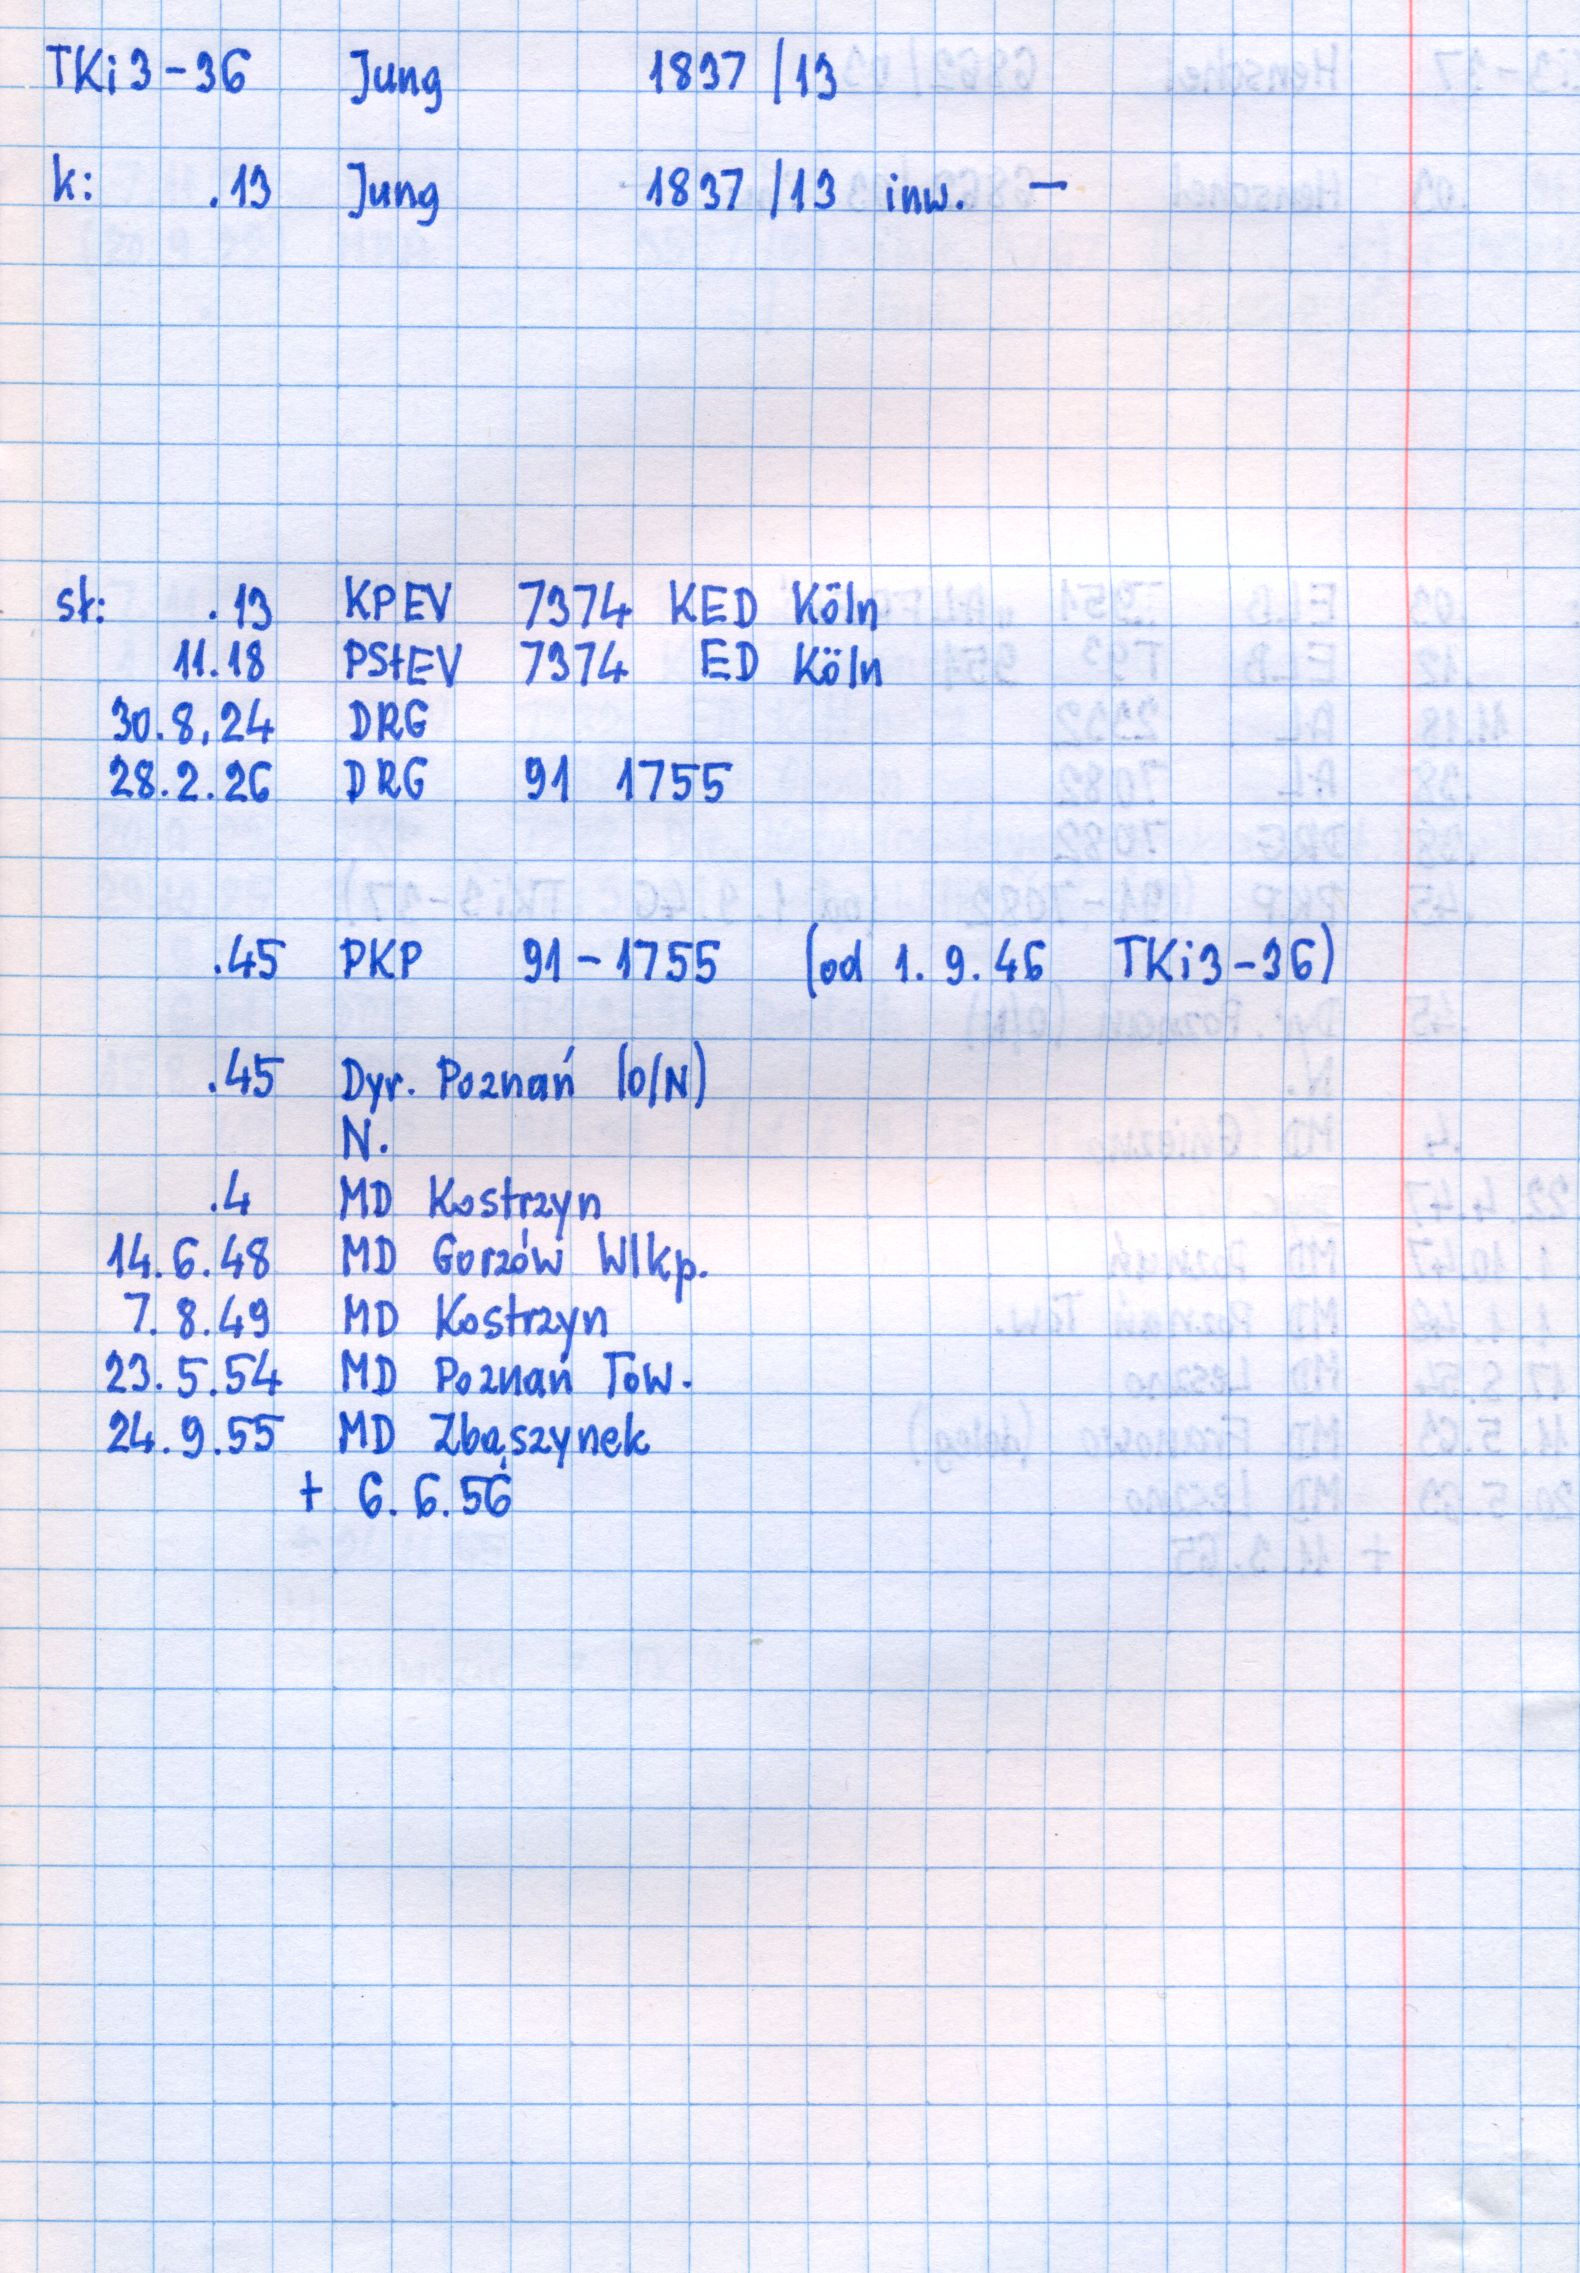 TKi3-36 Jung 1837/13
k: .13 Jung 1837/13 inw. –
st: .13 KPEV 7374 KED Köln
11.18 PStEV 7374 ED Köln
30.8.24 DRG
28.2.26 DRG 91 1755
.45 PKP 91-1755 (od 1.9.46 TKi3-36)
.45 Dyr. Poznań (O/N)
N.
.4 MD Kostrzyn
14.6.48 MD Gorzów Wlkp.
7.8.49 MD Kostrzyn
23.5.54 MD Poznań Tow.
24.9.55 MD Zbąszynek
+ 6.6.56